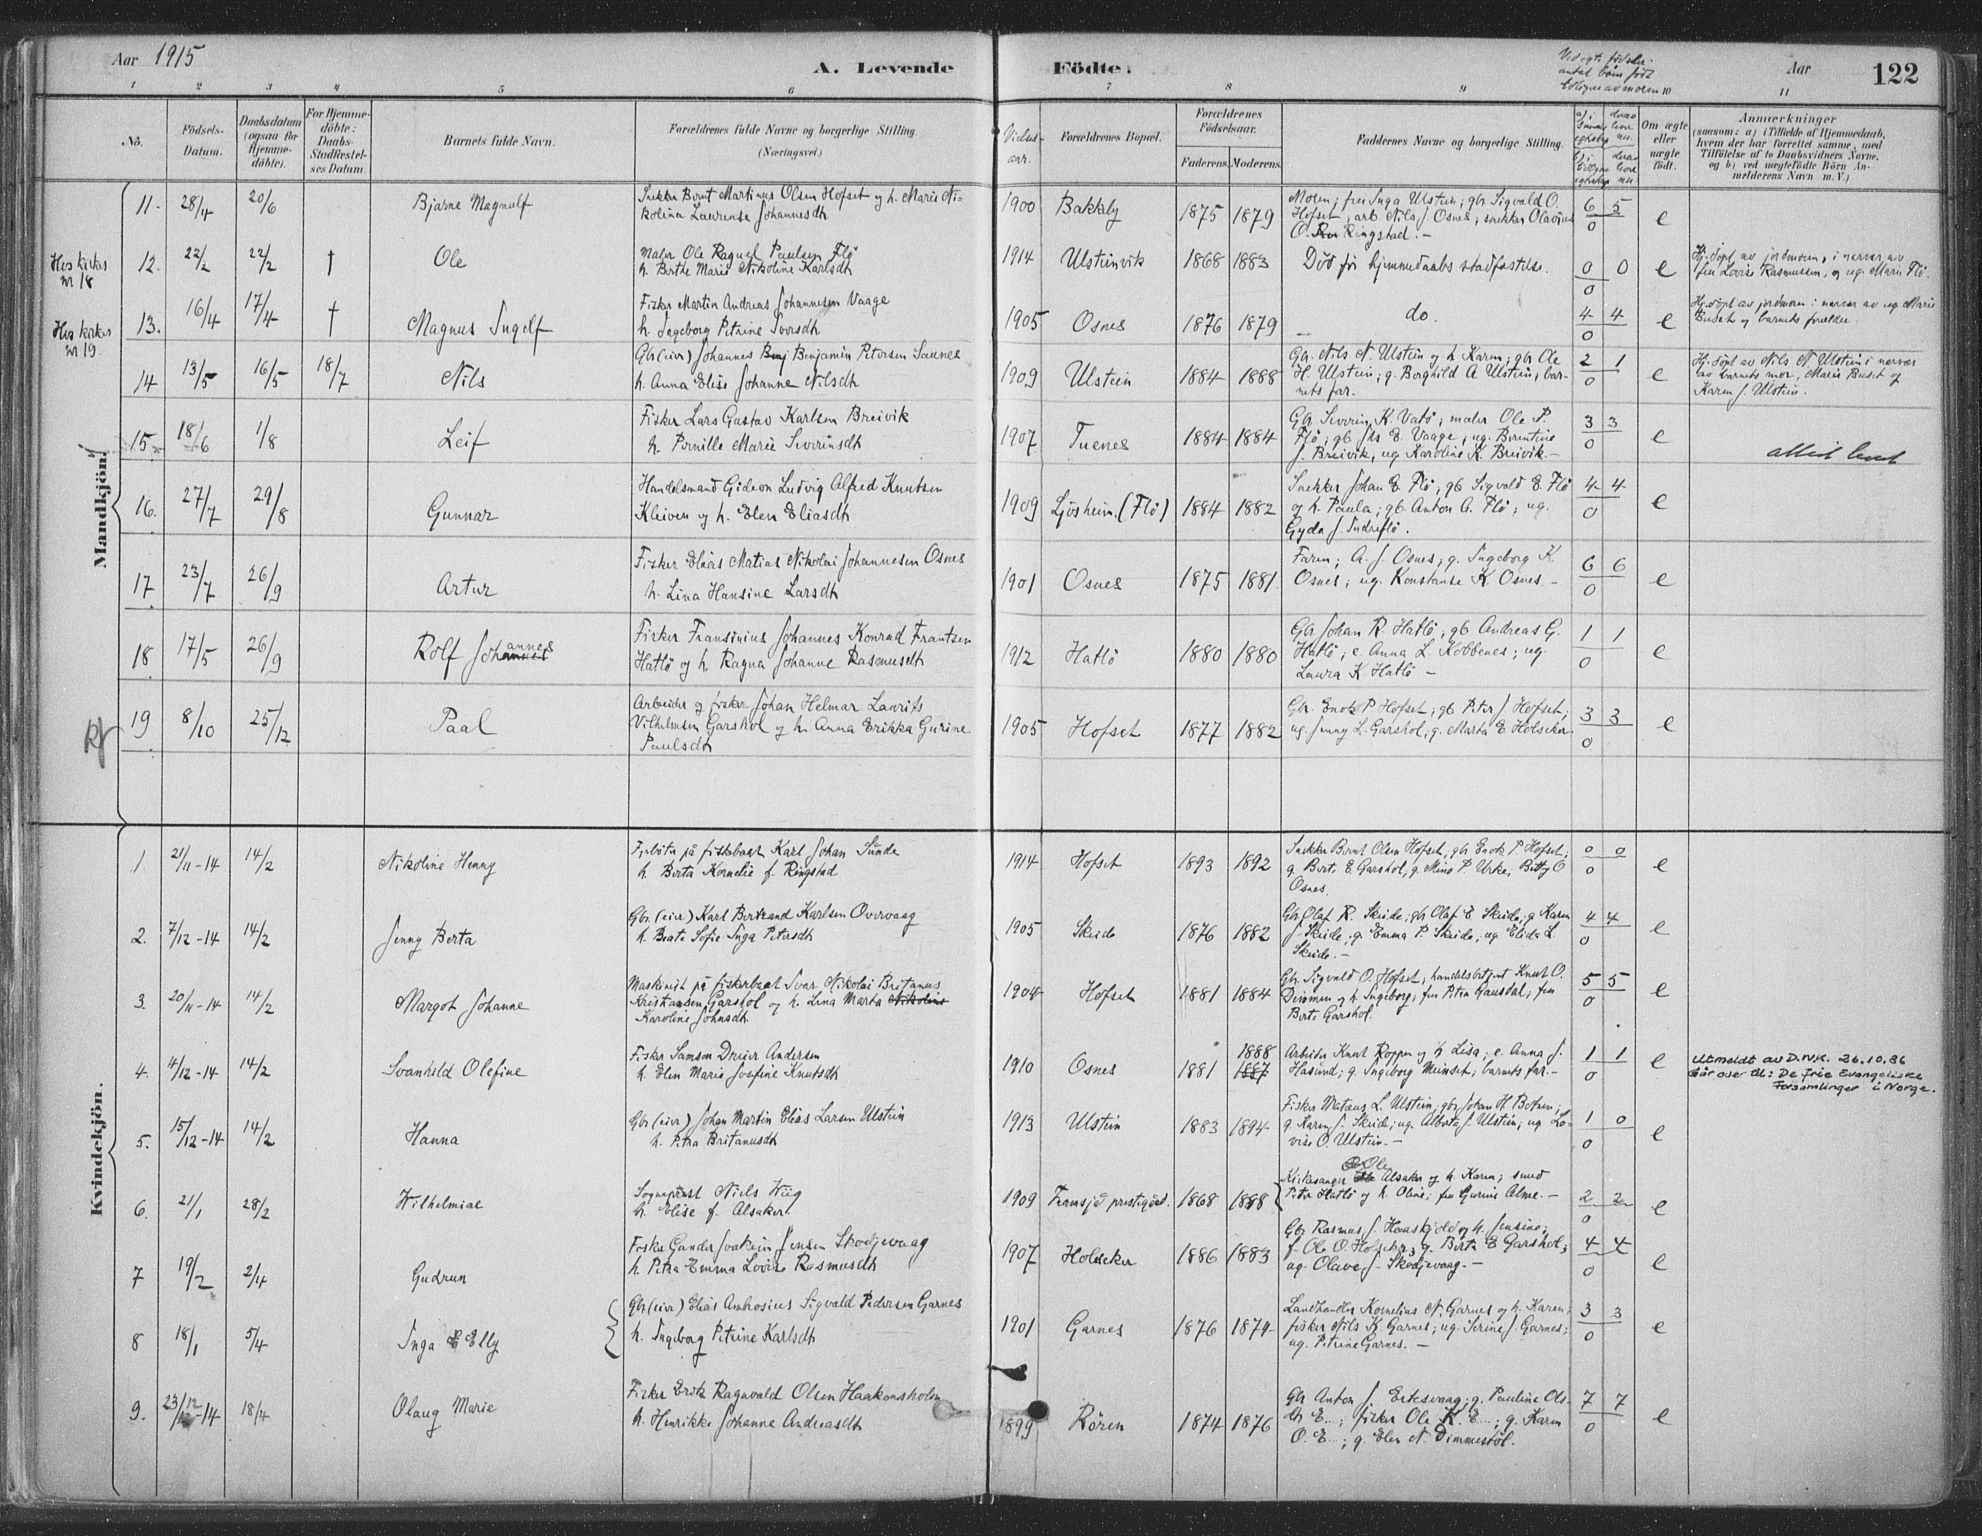 Aar 1915
A. Levende Födte.
Aar
122
1 2 3 4 5 6 7 8 9 10 11
No.
Födsels-Datum.
Daabsdatum (ogsaa for Hjemme-döbte).
For Hjemme-döbte: Daabs-Stadfæstel-ses Datum.
Barnets fulde Navn.
Forældrenes fulde Navne og borgerlige Stilling. (Næringsvei.)
Vielses-aar.
Forældrenes Bopæl.
Forældrenes Födselsaar.
Faderens. Moderens.
Faddernes Navne og borgerlige Stilling.
Om ægte eller uægte födt.
Anmærkninger
(saasom: a) i Tilfælde af Hjemmedaab, hvem der har forrettet samme, med Tilföielse af to Daabsvidners Navne, og b) ved uægtefödte Börn An-melderens Navn m. V.)
Mandkjön.
11. 28/4 20/6 Bjarne Magnulf
Snekker Bernt Martinus Olsen Hofset og h. Marie Ni-
kolina Laurense Johannesdt
1900 Bakkby 1875 1879
Moren; fru Inga Ulstein; gbr Sigvald O.
Hofset, arb Nils J. Osnes, snekker Olavius
O. Ringstad.—
6 5
0
e
12. 22/2 22/2 † Ole
Maler Ole Ragnvl Paulsen Flö
h. Berthe Marie Nikoline Karlsdt
1914 Ulsteinvik 1868 1883
Död för hjemmedaabs stadfæstelse.
0 0
0
e
Hj. döpt av jordmoren, i nærvær av
fru Lovise Rasmussen, og ug. Marie Flö.
13. 16/4 17/4 † Magnus Ingolf
Fisker Martin Andreas Johannesen Vaage
h. Ingeborg Petrine Iversdt
1905 Osnes 1876 1879
— do.
4 4
0
e
Hj. döpt av jordmoren i nærvær av ug. Marie
Buset og barnets forældre.
14 13/5 16/5 18/7 Nils
Gbr (eier) Johannes Benjamin Petersen Saunes
h. Anna Elise Johanne Nilsdt
1909 Ulstein 1884 1888
Gbr. Nils N. Ulstein og h. Karen; gbr Ole
H. Ulstein; g. Borghild A. Ulstein; bar-
nets far.
2 1
0
e
Hj. döpt av Nils N. Ulstein i nærvær
av barnets mor, Marie Buset og
Karen J. Ulstein.
15. 18/6 1/8 Leif
Fisker Lars Gustav Karlsen Breivik
h. Pernille Marie Severinsdt
1907 Tuenes 1884 1884
Gbr Severin K. Vatö; maler Ole P.
Flö; gb Js E. Vaage; ug. Berentine
J. Breivik, ug Karoline K. Breivik.—
3 3
0
e
16. 27/7 29/8 Gunnar
Handelsmand Gideon Ludvig Alfred Knutsen
Kleiven og h. Elen Eliasdt
1909 Ljösheim (Flö) 1884 1882
Snekker Johan E. Flö; gb Sigvald E. Flö
og h. Paula; gb. Anton A. Flö; ug.
Gyda J. Indreflö.
4 4
0
e
17 23/7 26/9 Artur
Fisker Elias Matias Nikolai Johannesen Osnes
h. Lina Hansine Larsdt
1901 Osnes 1875 1881
Faren; A. J. Osnes; g. Ingeborg K.
Osnes; ug. Konstanse K. Osnes.—
6 6
0
e
18 17/5 26/9 Rolf Johannes
Fisker Fransinius Johannes Konrad Frantsen
Hatlö og h. Ragna Johanne Rasmusdt
1912 Hatlö 1880 1880
Gbr Johan R. Hatlö, gb Andreas G.
Hatlö; e. Anna L. Kobbenes; ug.
Laura K. Hatlö —
1 1
0
e
19 8/10 25/12 Paal
Arbeider og fisker Johan Helmar Laurits
Vilhelmsen Garshol og h. Anna Erikka Gurine
Paulsdt
1905 Hofset 1877 1882
Gbr. Enok P. Hofset; gb Peter J. Hofset;
ug. Jenny L. Garshol, g. Marta E. Holseker
3 3
0
e
Kvindekjön.
1. 21/11-14 14/2 Nikoline Henny
Fyrböter på fiskebaat Karl Johan Sunde
h. Berta Kornelie f. Ringstad
1914 Hofset 1893 1892
Snekker Bernt Olsen Hofset, gbr Enok P. Hofset;
g. Bert. E. Garshol, g. Mina P. Urke, Betty O
Osnes.
0 0
0
e
2. 7/12-14 14/2 Jenny Berta
Gbr (eier) Karl Bertrand Karlsen Overvaag
h. Beate Sofie Inga Petersdt
1905 Skeide 1876 1882
Gbr Olaf R. Skeide; gbr Olaf E. Skeide, g. Karen
J. Skeide, g. Emma P. Skeide, ug Elida L.
Skeide.—
4 4
0
e
3. 20/11-14 14/2 Margot Johanne
Maskinist på fiskerbaat Ivar Nikolai Britanus
Kristiansen Garshol og h. Lina Marta
Karoline Johnsdt.
1904 Hofset 1881 1884
Gbr. Sigvald O. Hofset; handelsbetjent Knut O.
Dimmen og h. Ingeborg; fru Petra Gausdal, fru
Berte Garshol.
5 5
0
e
4. 4/12-14 14/2 Svanhild Olefine
Fisker Samson Dreier Andersen
h. Elen Marie Josefine Knutsdt
1910 Osnes 1881 1888
Arbeider Knut Roppen og h. Lisa; e. Anna J.
Hasund; g. Ingeborg Meinset; barnets far.—
1 1
0
e
Utmeldt av D.N.K. 26.10.86
Går over til: De Frie Evangeliske
Forsamlinger i Norge.
5. 15/12-14 14/2 Hanna
Gbr (eier) Johan Martin Elias Larsen Ulstein
h. Petra Britanusdt
1913 Ulstein 1883 1894
Fisker Mataus L. Ulstein; gbr Johan H. Botnen;
g. Karen J. Skeide; ug. Alberta J. Ulstein; ug Lo-
vise O. Ulstein.—
1 0
0
e
6. 21/1 28/2 Wilhelmine
Sogneprest Niels Wiig
h. Elise f. Alsaker
1909 1868 1888
Kirkesanger Ole Alsaker og h. Karen; smed
Peter Hatlö og h. Oline; fru Gurine Alme.—
2 2
0
e
7 19/2 2/4 Gudrun
Fisker Gunder Joakim Jensen Skodjevaag
h. Petra Emma Lovise Rasmusdt
1907 Holseker 1886 1883
Gbr Rasmus J. Haaskjold og h. Jensine;
f. Ole O. Holseker; g. Berta E Garshol;
ug. Olave J. Skodjevaag.—
4 4
0
e
8 18/1 5/4 Inga Elly
Gbr (eier) Elias Ambrosius Sigvald Pedersen Garnes
h. Ingeborg Petrine Karlsdt
1901 Garnes 1876 1874
Landhandler Kornelius N. Garnes og h. Karen;
fisker Nils K. Garnes; ug. Serine J. Garnes;
ug. Petrine Garnes.—
3 3
0
e
9. 23/12-14 18/4 Olaug Marie
Fisker Erik Ragnvald Olsen Haakonsholm
h. Henrikke Johanne Andreasdt
1899 Rören 1874 1876
Gbr Anton J. Eitesvaag; g. Pauline Ols-
dt E...; fisker Ole K. E...; g. Karen
O. E...; g. Elen N. Dimmestöl.
7 7
0
e